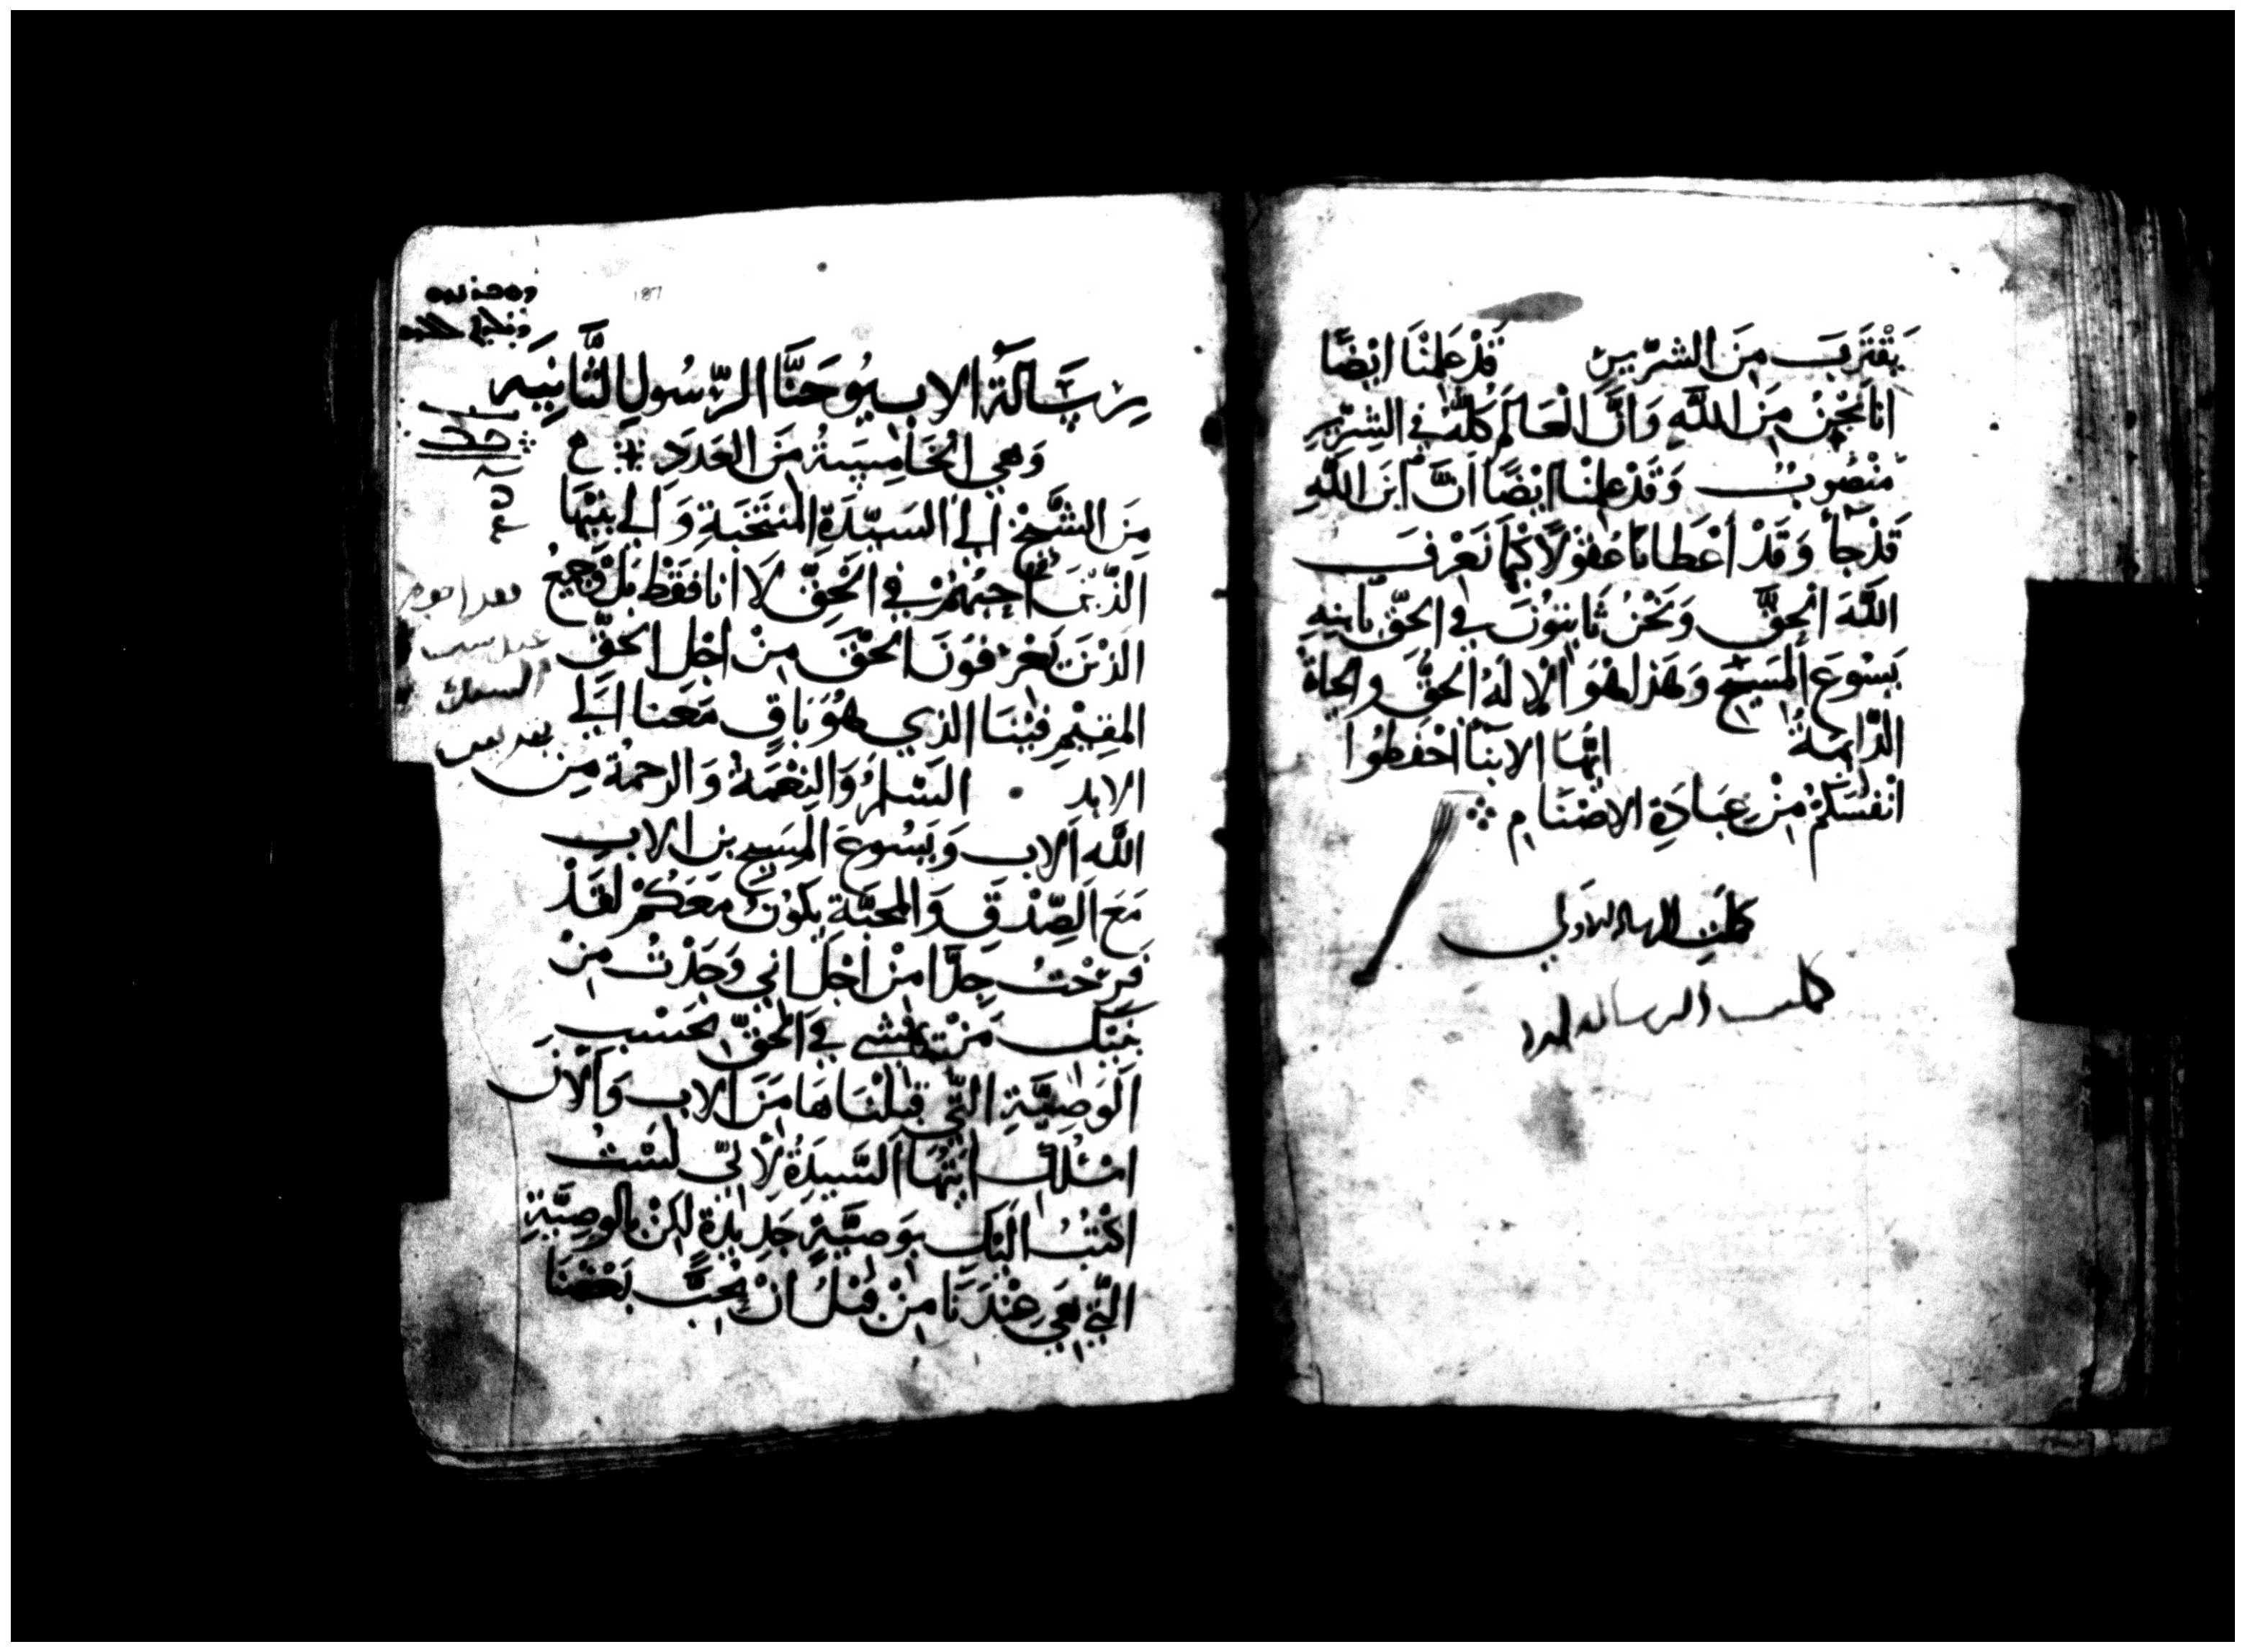 يَقْتَرِبَ مِنَ الشرّيرِ قَدْ عَلِمْنَا ايْضًا
انا نَحْنُ مِنَ اللَّهِ وَانَّ الْعَالَمَ كُلَّهُ فِي الشِرّيرِ
مَنْصُوبٌ وَقَدْ عَلِمْنا ايْضًا انَّ ابنَ اللَّهِ
قَدْ جآ وَقَدْ أعْطانا عُقوُلًا كَيما نَعْرِفَ
اللَّهَ الحقَّ وَنَحْنُ ثَابِتوُنَ في الحَقّ بابنِهِ
يَسُوعَ المَسِيحِ وَهَذا هُوَ الْإلَهُ الحقُّ والحياةُ
الدَّايمَةُ ايُّهَا الابنآ احْفَظوُا
انْفُسَكُمْ مِنْ عِبَادَةِ الاصْنَامِ
كملت الرساله الاولي
كملت الرساله
187
رِسَالَةُ الاب يُوحَنَّا الرّسُولِ الثَّانِيَه
وَهي الخَامِسَةُ مَنَ العَدَدِ
مِنَ الشَّيْخِ الَي السَيّدَةِ المنتَخَبَةِ وَالي بنيْهَا
الذّيْنَ احِبُّهُمْ فِي الْحَقِّ لَا انا فَقَطْ بَلْ وَجَمِيْعُ
الذيْنَ يَعْرِفوُنَ الحَقَّ مِنْ اجْلِ الحَقِّ
المقِيْمِ فيْنَا الذي هُوَ بَاقٍ مَعَنا الَي
الابد السَّلَمُ وَالنِعْمَةُ وَالرحمَةُ مِنَ
اللَّه الاب وَيَسُوعَ المَسِيحِ بن الاب
مَعَ الصِّدْقِ وَالمحَبَّةِ يَكوُنُ مَعَكُمْ لَقَدْ
فَرِحْتُ جِدًّا مِنْ اجْلِ اني وَجَدْتُ مِنْ
بَنيْكِ مَنْ يمْشي فِي الحَقّ بحَسْبِ
الَوَصِيَّةِ التِّي قَبِلْنَاهَا مِنَ الاب وَالآنَ
اسْئَلُكِ ايَّتُهَا السَّيِدَةُ لِأنّي لَسْتُ
اكتُبُ الَيْكِ بوَصِيَّةٍ جَدِيْدَةٍ لكِنْ بالوصِيَّةِ
التِّي هِيَ عِنْدَنَا مِنْ قبْلُ انْ يُحِبَّ بَعْضُنَا